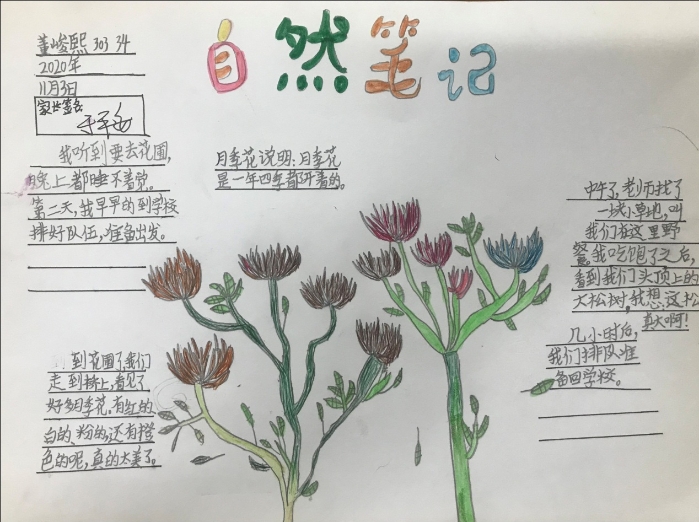 自然笔记
董峻熙 303 34
2020年
11月3日
家长签名
我听到要去花圃,
晚上都睡不着觉。
第二天,我早早的到学校
排好队伍,准备出发。
月季花说明:月季花
是一年四季都开着的。
到花圃了,我们
走到桥上,看见了
好多月季花。有红的
白的、粉的,还有橙
色的呢,真的太美了。
中午了,老师找了
一块小草地,叫
我们在这里野
餐。我吃饱了之后,
看到我们头顶上的
大松树,我想:这松
真大啊!
几小时后,
我们排队准
备回学校。